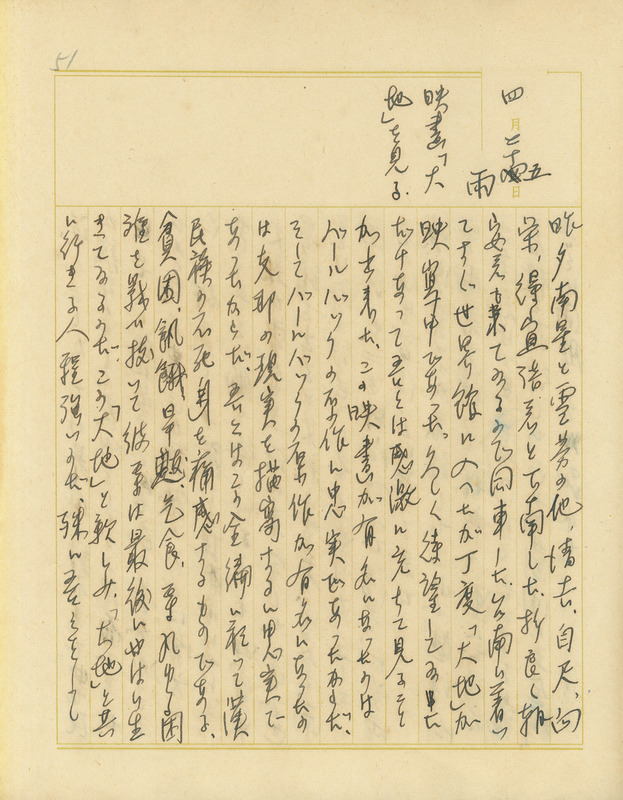 51
四月二十五日
雨
映畫「大
地」を見る.
昨夕南星と雲芳の他、清吉、自天、向
榮、得宜諸君と台南した。折良く朝
安君も来てゐるので同車した。台南に着い
てすぐ世界館に入つたが丁度「大地」が
映寫中であつた。久しく待望してゐた
だけあつて吾々は感激に充ちて見ること
が出来た。この映畫が有名になつたのは
パールバックの原作に忠実であつたからだ。
そしてパールバックの原作が有名になつたの
は支那の現実を描寫するに忠実で
あつたからだ。吾々はこの全編に於って漢
民族の不死身を痛感するものである。
貧困、飢餓、旱魃、乞食、あらゆる困
難を戰ひ抜いて彼等は最後にやはり生
きてゐるのだ。この「大地」と親しみ、「大地」と共
に行きる人程強いのだ。殊に吾々として